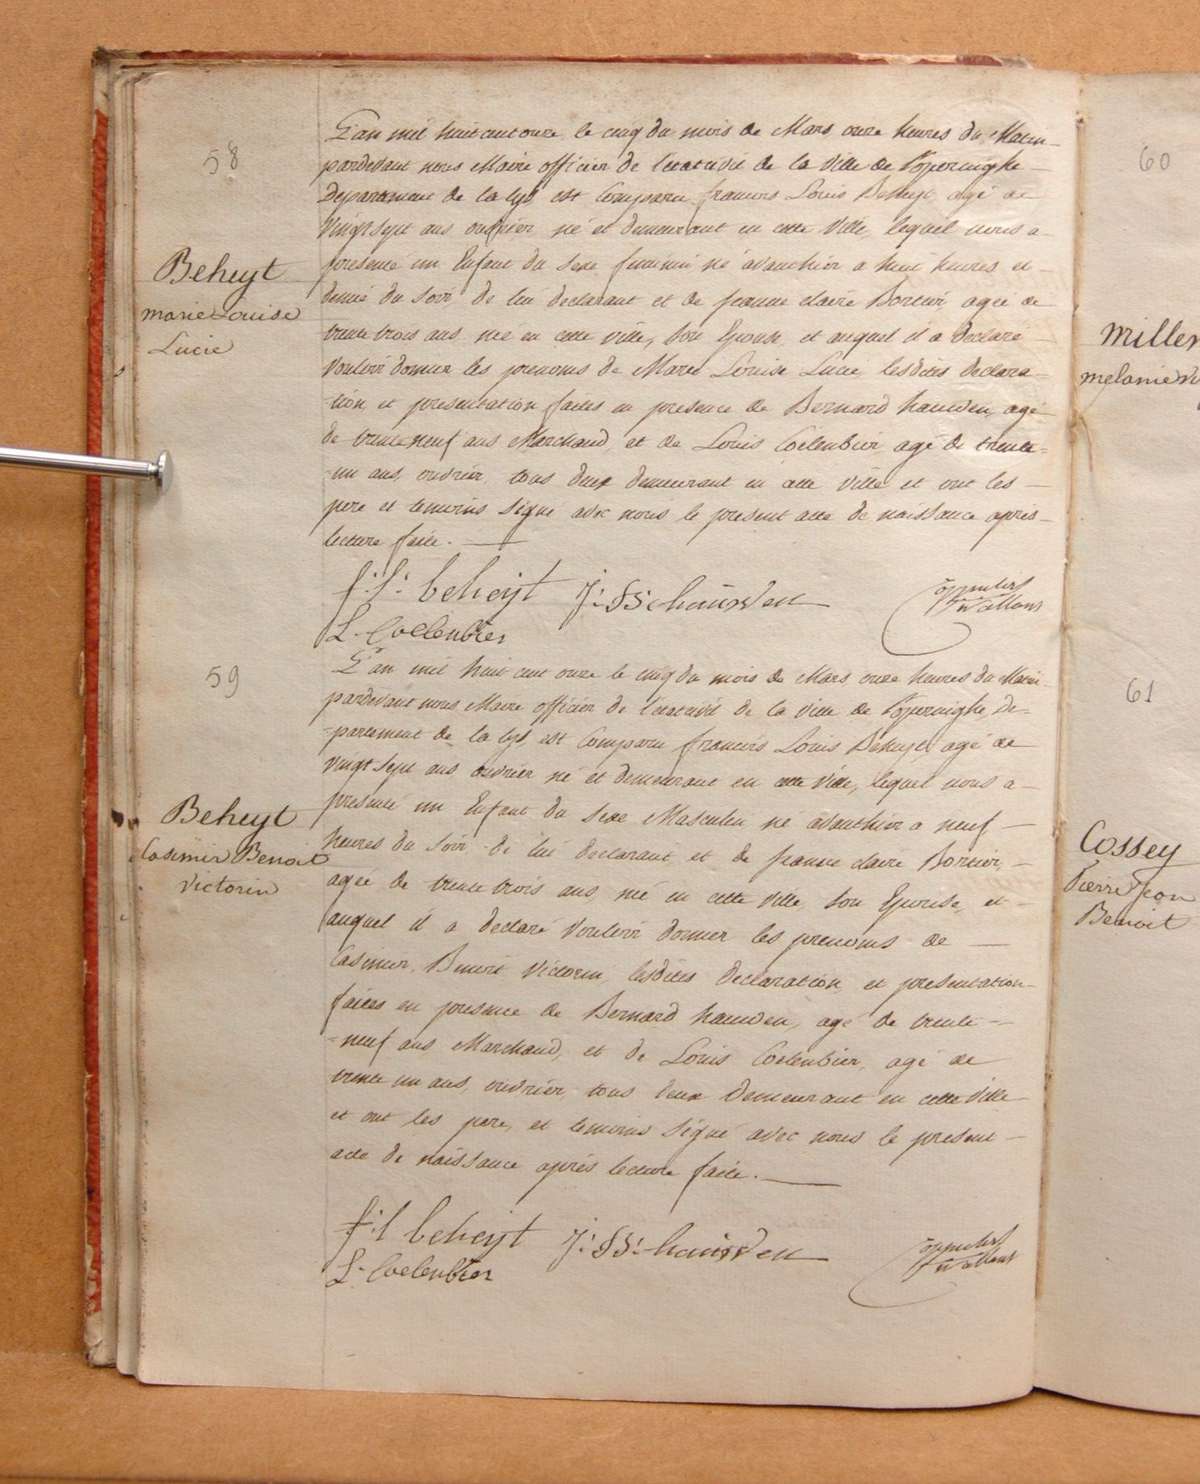 58
Beheyt
marie Louise
Lucie
L'an mil huit cent onze le cinq du mois de Mars onze heures du Matin
pardevant nous Maire officier de l'etat civil de la Ville de Poperinghe
Departement de la Lys, est Comparu françois Louis Beheyt, agé de
vingt sept ans ouvrier né et demeurant en cette Ville, lequel nous a
presenté un Enfant du Sexe feminin né avanthier a huit heures et
demie du soir de lui declarant et de jeanne claire Bortier, agée de
trente trois ans, née en cette ville, son Epouse, et auquel il a declaré
Vouloir donner les prenoms de Marie Louise Lucie, lesdites declara-
-tion et presentation faites en presence de Bernard hauwen, agé
de trente neuf ans Marchand, et de Louis Coelenbier agé de trente
-un ans, ouvrier, tous deux demeurant en cette Ville et ont les
pere et temoins signé avec nous le present acte de naissance apres
lecture faite.
f: l: beheijt J: B: hauwen
L. Coelenbier
59
Beheyt
Casimir Benoit
Victorin
L'an mil huit cent onze le cinq du mois de Mars onze heures du Matin
pardevant nous Maire officier de l'etat civil de la Ville de Poperinghe, De-
-partement de la Lys, est Comparu françois Louis Beheyt, agé de
vingt sept ans ouvrier né et demeurant en cette Ville, lequel nous a
presenté un Enfant du Sexe Masculin né avanthier a neuf
heures du soir de lui declarant et de jeanne claire Bortier,
agée de trente trois ans, née en cette Ville, son Epouse, et
auquel il a declaré Vouloir donner les prenoms de
Casimir, Benoit Victorin, lesdites declaration et presentation
faites en presence de Bernard hauwen, agé de trente
-neuf ans Marchand, et de Louis Coelenbier, agé de
trente un ans, ouvrier, tous deux demeurant en cette Ville
et ont les pere, et temoins signé avec nous le present
acte de naissance après lecture faite.
f: l beheijt J: B: hauwen
L. Coelenbier
60
Miller
melanie
61
Cossey
Pierre Jean
Benoit